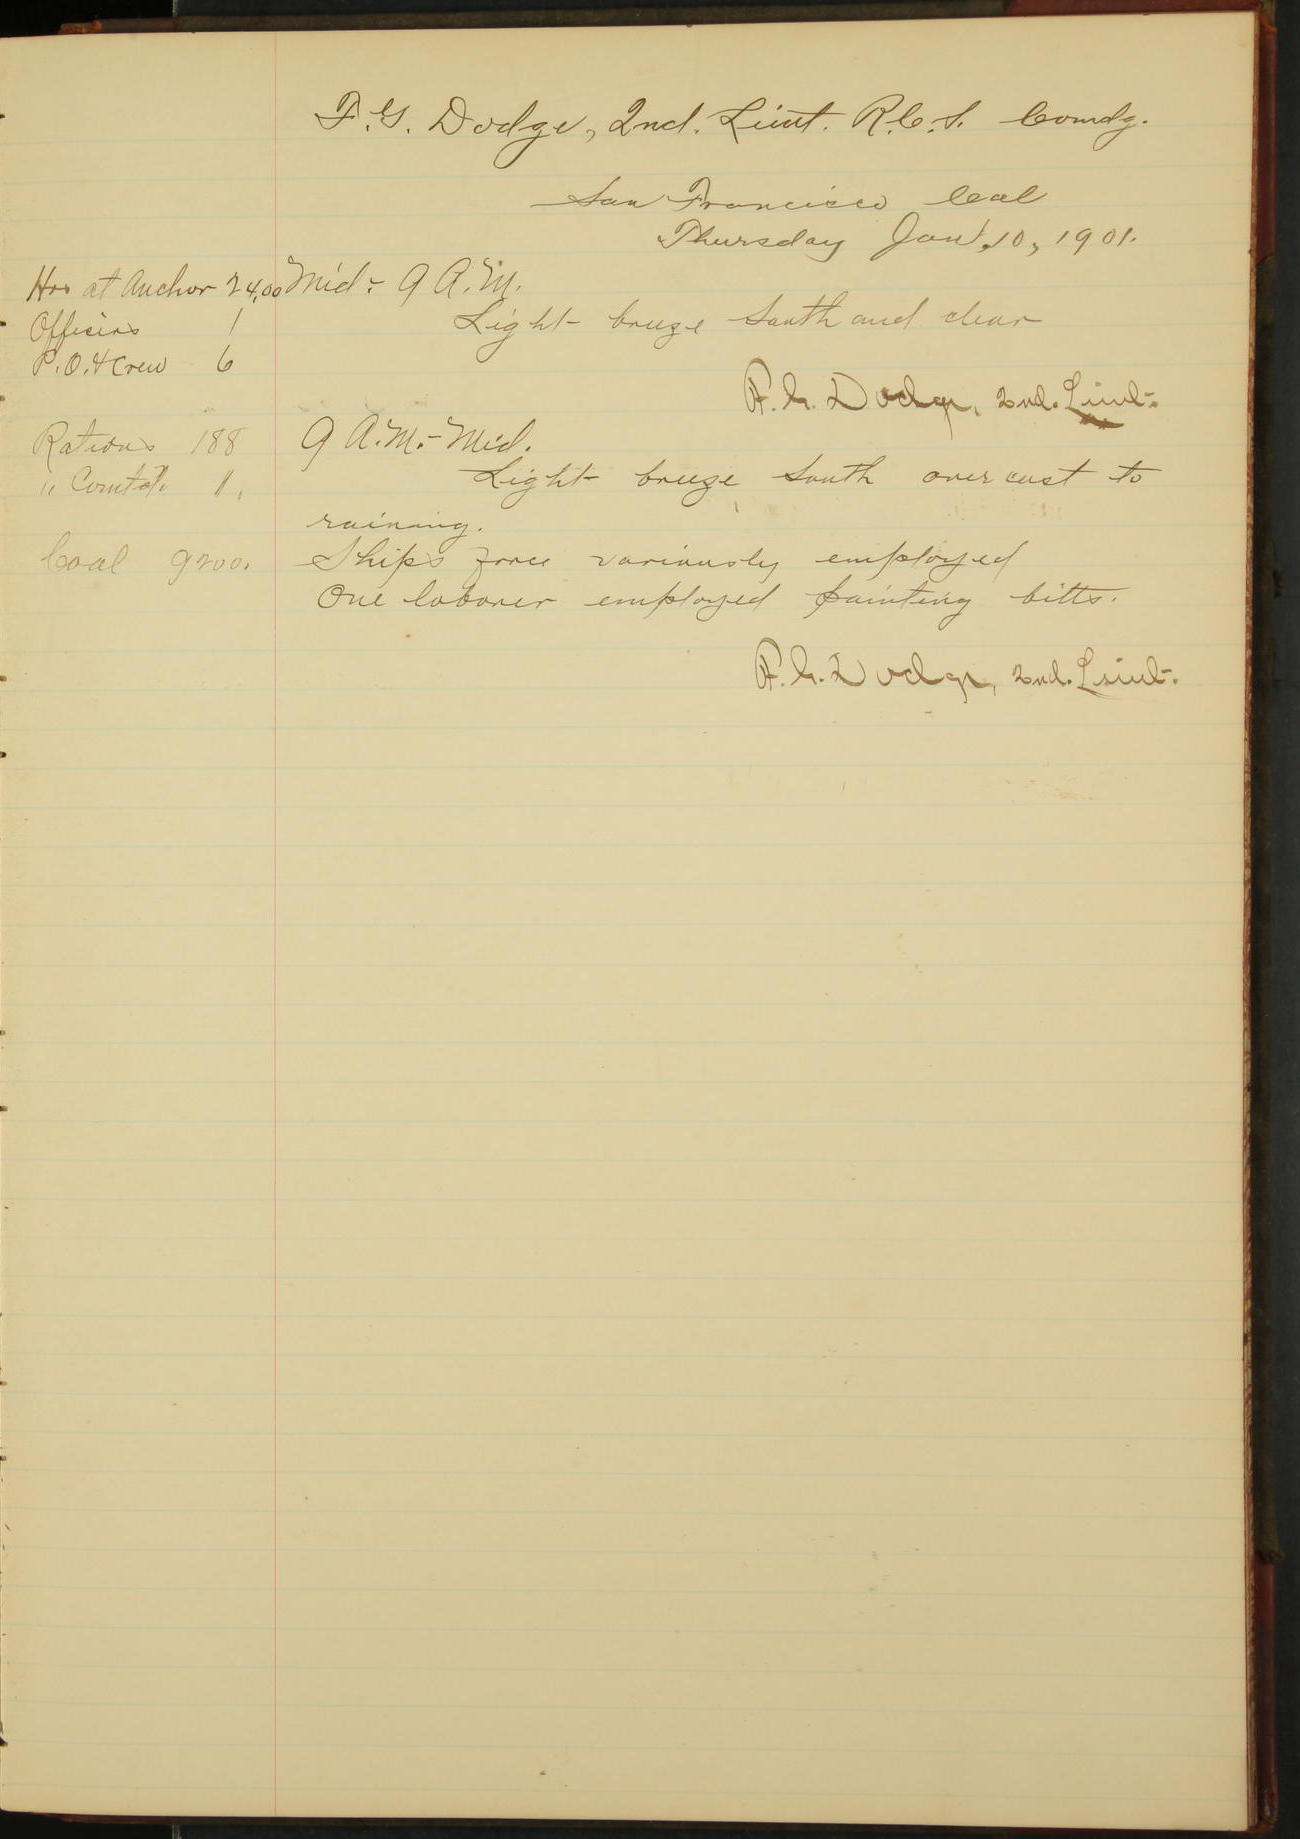 F. G. Dodge, 2nd. Lieut. R.C.S. Comdg.
San Francisco Cal
Thursday Jan'. 10, 1901.
Hrs at Anchor 24,00 Mid - 9 A.M.
Officers 1 Light breeze South and clear
P.O. & Crew 6
F. G. Dodge, 2nd. Lieut.
Rations 188 9 A.M. - Mid.
" Comtd. 11. Light breeze South overcast to
raining.
Coal 9200. Ships force variously employed
One laborer employed painting bitts.
F. G. Dodge, 2nd. Lieut.